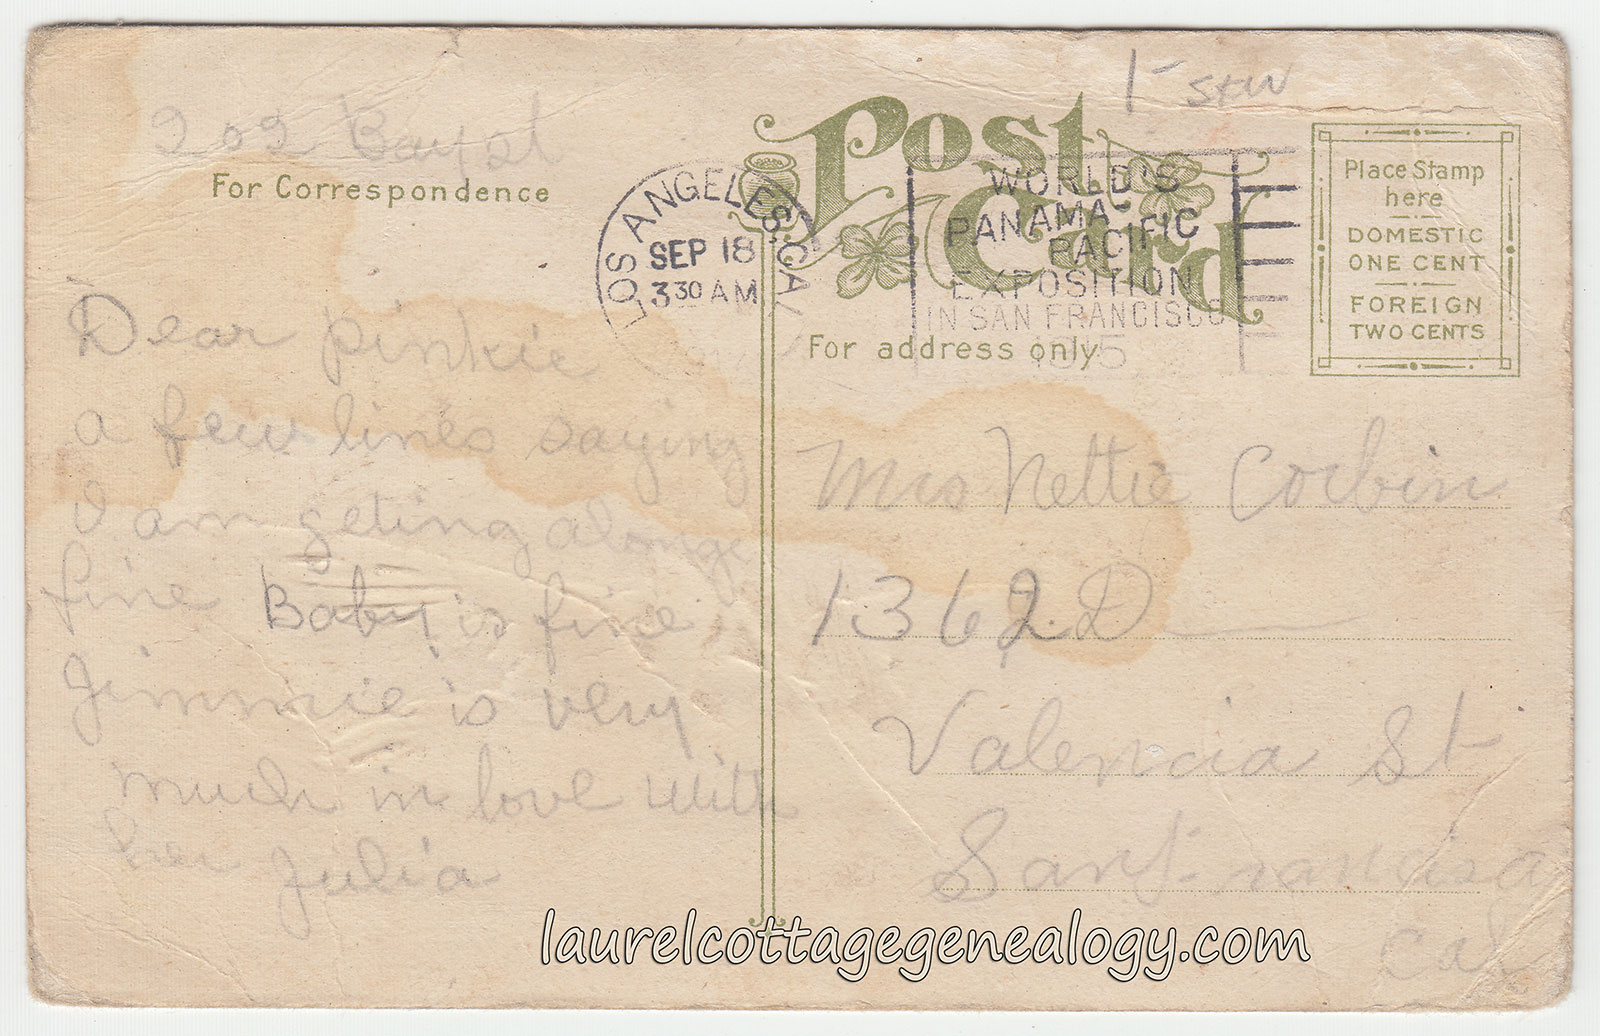 1- stw
202 Bay st
For Correspondence
Dear Pinkie
a few lines saying
I am geting along
fine Baby is fine
Jimmie is very
much in love with
her Julia
Post Card
LOS ANGELES, CAL
SEP 18
3 30 AM
WORLD'S
PANAMA-
PACIFIC
EXPOSITION
IN SAN FRANCISCO
1915
For address only
Place Stamp
here
DOMESTIC
ONE CENT
FOREIGN
TWO CENTS
Mrs Nettie Corbin
1362 D
Valencia St
San Francisco
Cal
laurelcottagegenealogy.com